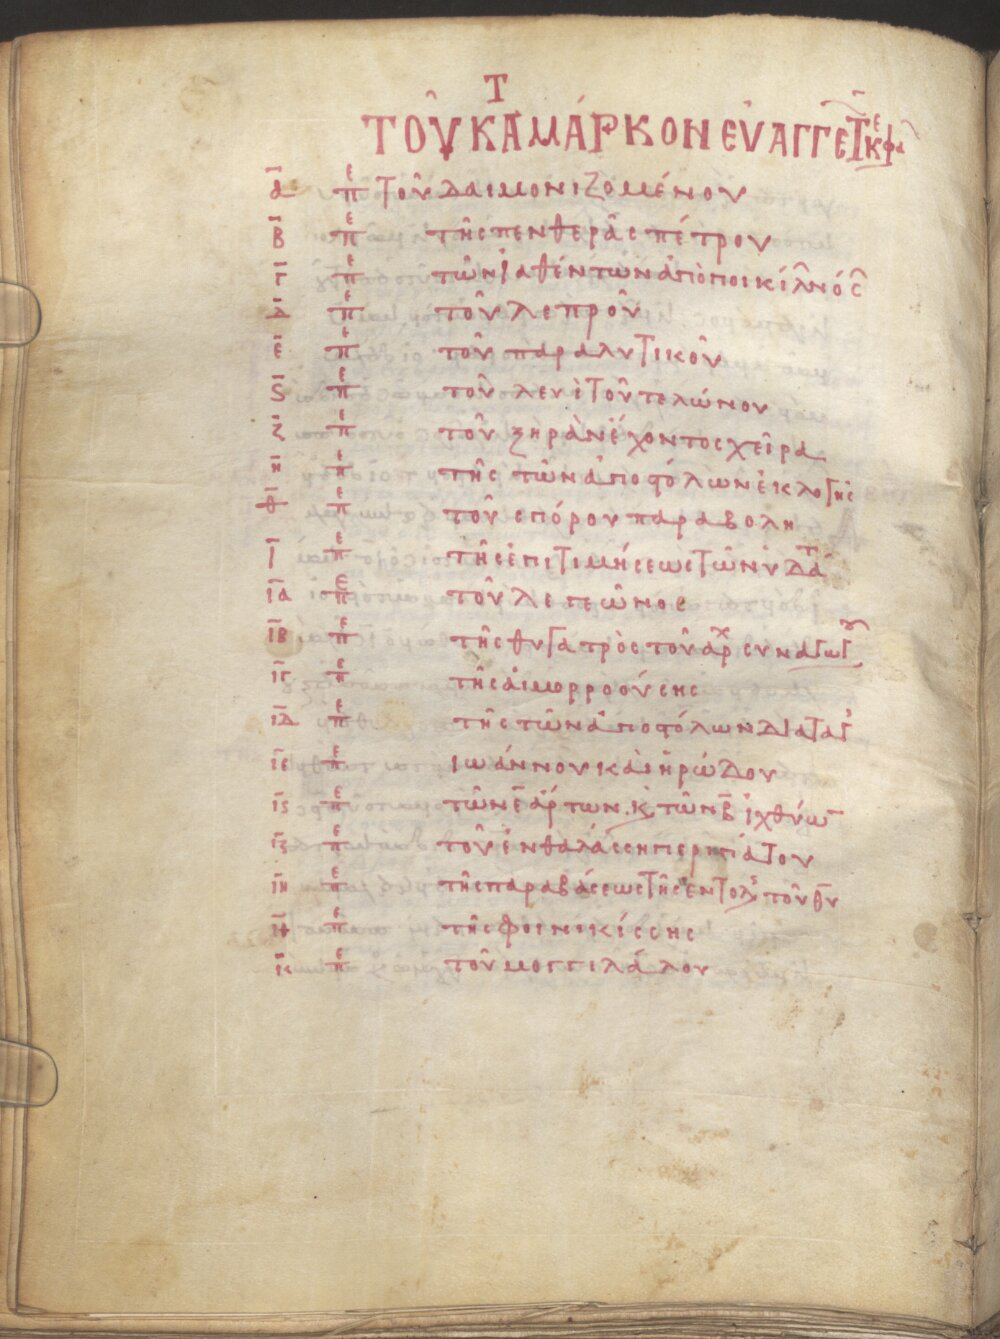 ΤΟῦ ΚΑΤ ΜΆΡΚΟΝ ΕΥ̓ΑΓΓΕ ΤᾺ ΚΕΦΑ
α̅ πε τοῦ δαιμονιζομένου
β̅ πε τῆς πενθερᾶς πέτρου
γ̅ πε τῶν ἰαθέντων ἀπὸ ποικίλων νόσ
δ̅ πε τοῦ λεπροῦ
ε̅ πε τοῦ παραλυτικοῦ
ϛ̅ πε τοῦ λευὶ τοῦ τελώνου
ζ̅ πε τοῦ ξηρὰν ἔχοντος χεῖρα
η̅ πε τῆς τῶν ἀποϛόλων ἐκλογῆς
θ̅ πε τοῦ σπόρου παραβολη
ι̅ πε τῆς ἐπιτιμήσεως τῶν ὑδάτ
ι̅α̅ πε τοῦ λεγεῶνος
ι̅β̅ πε τῆς θυγατρὸς τοῦ ἀρχ συναγωγου
ι̅γ̅ πε τῆς αἱμορροούσης
ι̅δ̅ πε τῆς τῶν ἀποϛόλων διαταγ
ι̅ε̅ πε ἰωάννου καὶ ἡρώδου
ι̅ϛ̅ πε τῶν ε̅ ἄρτων κ τῶν β̅ ἰχθύω
ι̅ζ̅ πε τοῦ ἐν θαλάσση περιπάτου
ι̅η̅ πε τῆς παραβάσεως τῆς ἐντολῆς τοῦ θ̅υ̅
ι̅θ̅ πε τῆς φοινικίσσης
κ̅ πε τοῦ μογγιλάλου